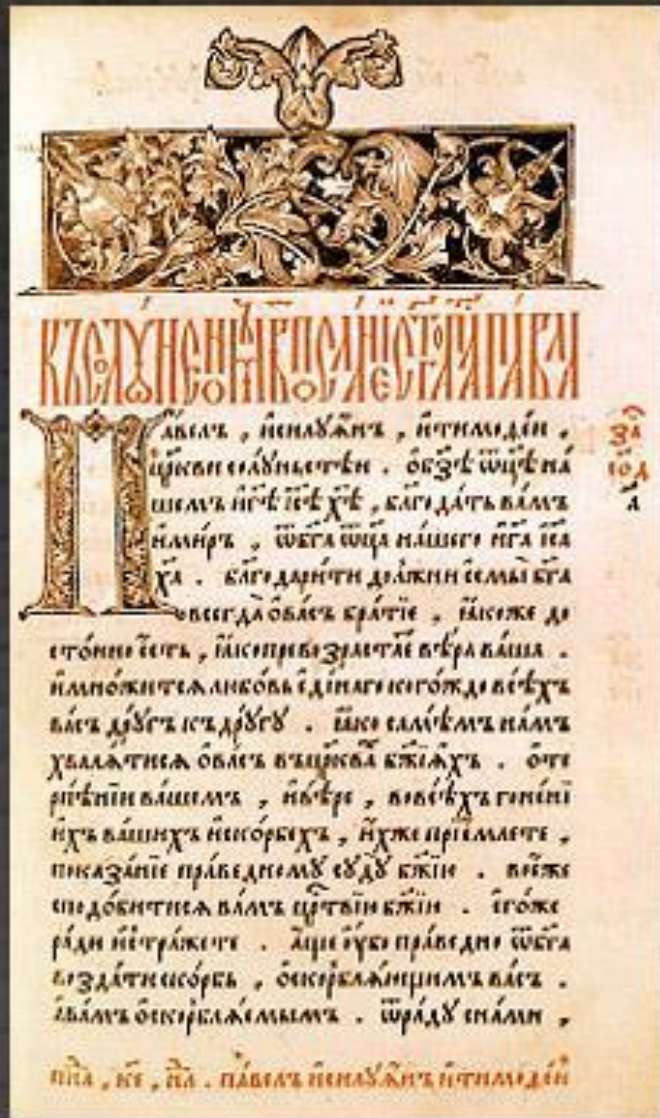 къ солꙋ́неномъ в҃ посла́нїе ст҃го ап҃ла па́вла
Па́велъ , и҆силꙋа́нъ , и҆тимоѳе́и ,
цр҃кви солꙋ́ньстѣи . ѡ҆бз҃ѣ ѿц҃ѣ на́
шемъ и҆гд҃ѣ і҆с҃ѣ хр҃тѣ , благода́ть ва́мъ
и҆ми́ръ , ѿбг҃а ѿц҃а на́шего и҆гд҃а і҆с҃а
х҃а . благодари́ти до́лжни є҆смы̀ бг҃а
всегда̀ ѡ҆ва́съ бра́тїе , ꙗ҆́коже до
сто́йно є҆́сть , ꙗ҆́ко превозраста́е вѣ́ра ва́ша .
и҆мно́житсѧ любо́вь є҆ди́наго кого́ждо все́ѣхъ
ва́съ дрꙋ́гъ къ дрꙋ́гꙋ . ꙗ҆́ко самѣ́мъ на́мъ
хвали́тисѧ ѡ҆ва́съ въцр҃ква бж҃їихъ . ѡ҆те
рпѣ́нїи ва́шемъ , и҆вѣ́ре , вовсѣ́хъ гоне́нї
и҆хъ ва́шихъ и҆ско́рбехъ , и҆́хже прїе́млете ,
показа́нїе пра́веднomꙋ сꙋдꙋ̀ бж҃їю . воє҆́же
сподо́битисѧ ва́мъ цр҃твїю бж҃їю . є҆гѡ́же
ра́ди и҆стра́жете . а҆́ще ᲂу҆́бо пра́ведно ѿбг҃а
возда́ти ско́рбь , ѡ҆скорблѧ́ющимъ ва́съ .
а҆ва́мъ ѡ҆скорблѧ́емымъ . ѿра́дꙋ сна́ми ,
за
со҃д
а
па́велъ и҆силꙋа́нъ и҆тимоѳе́й